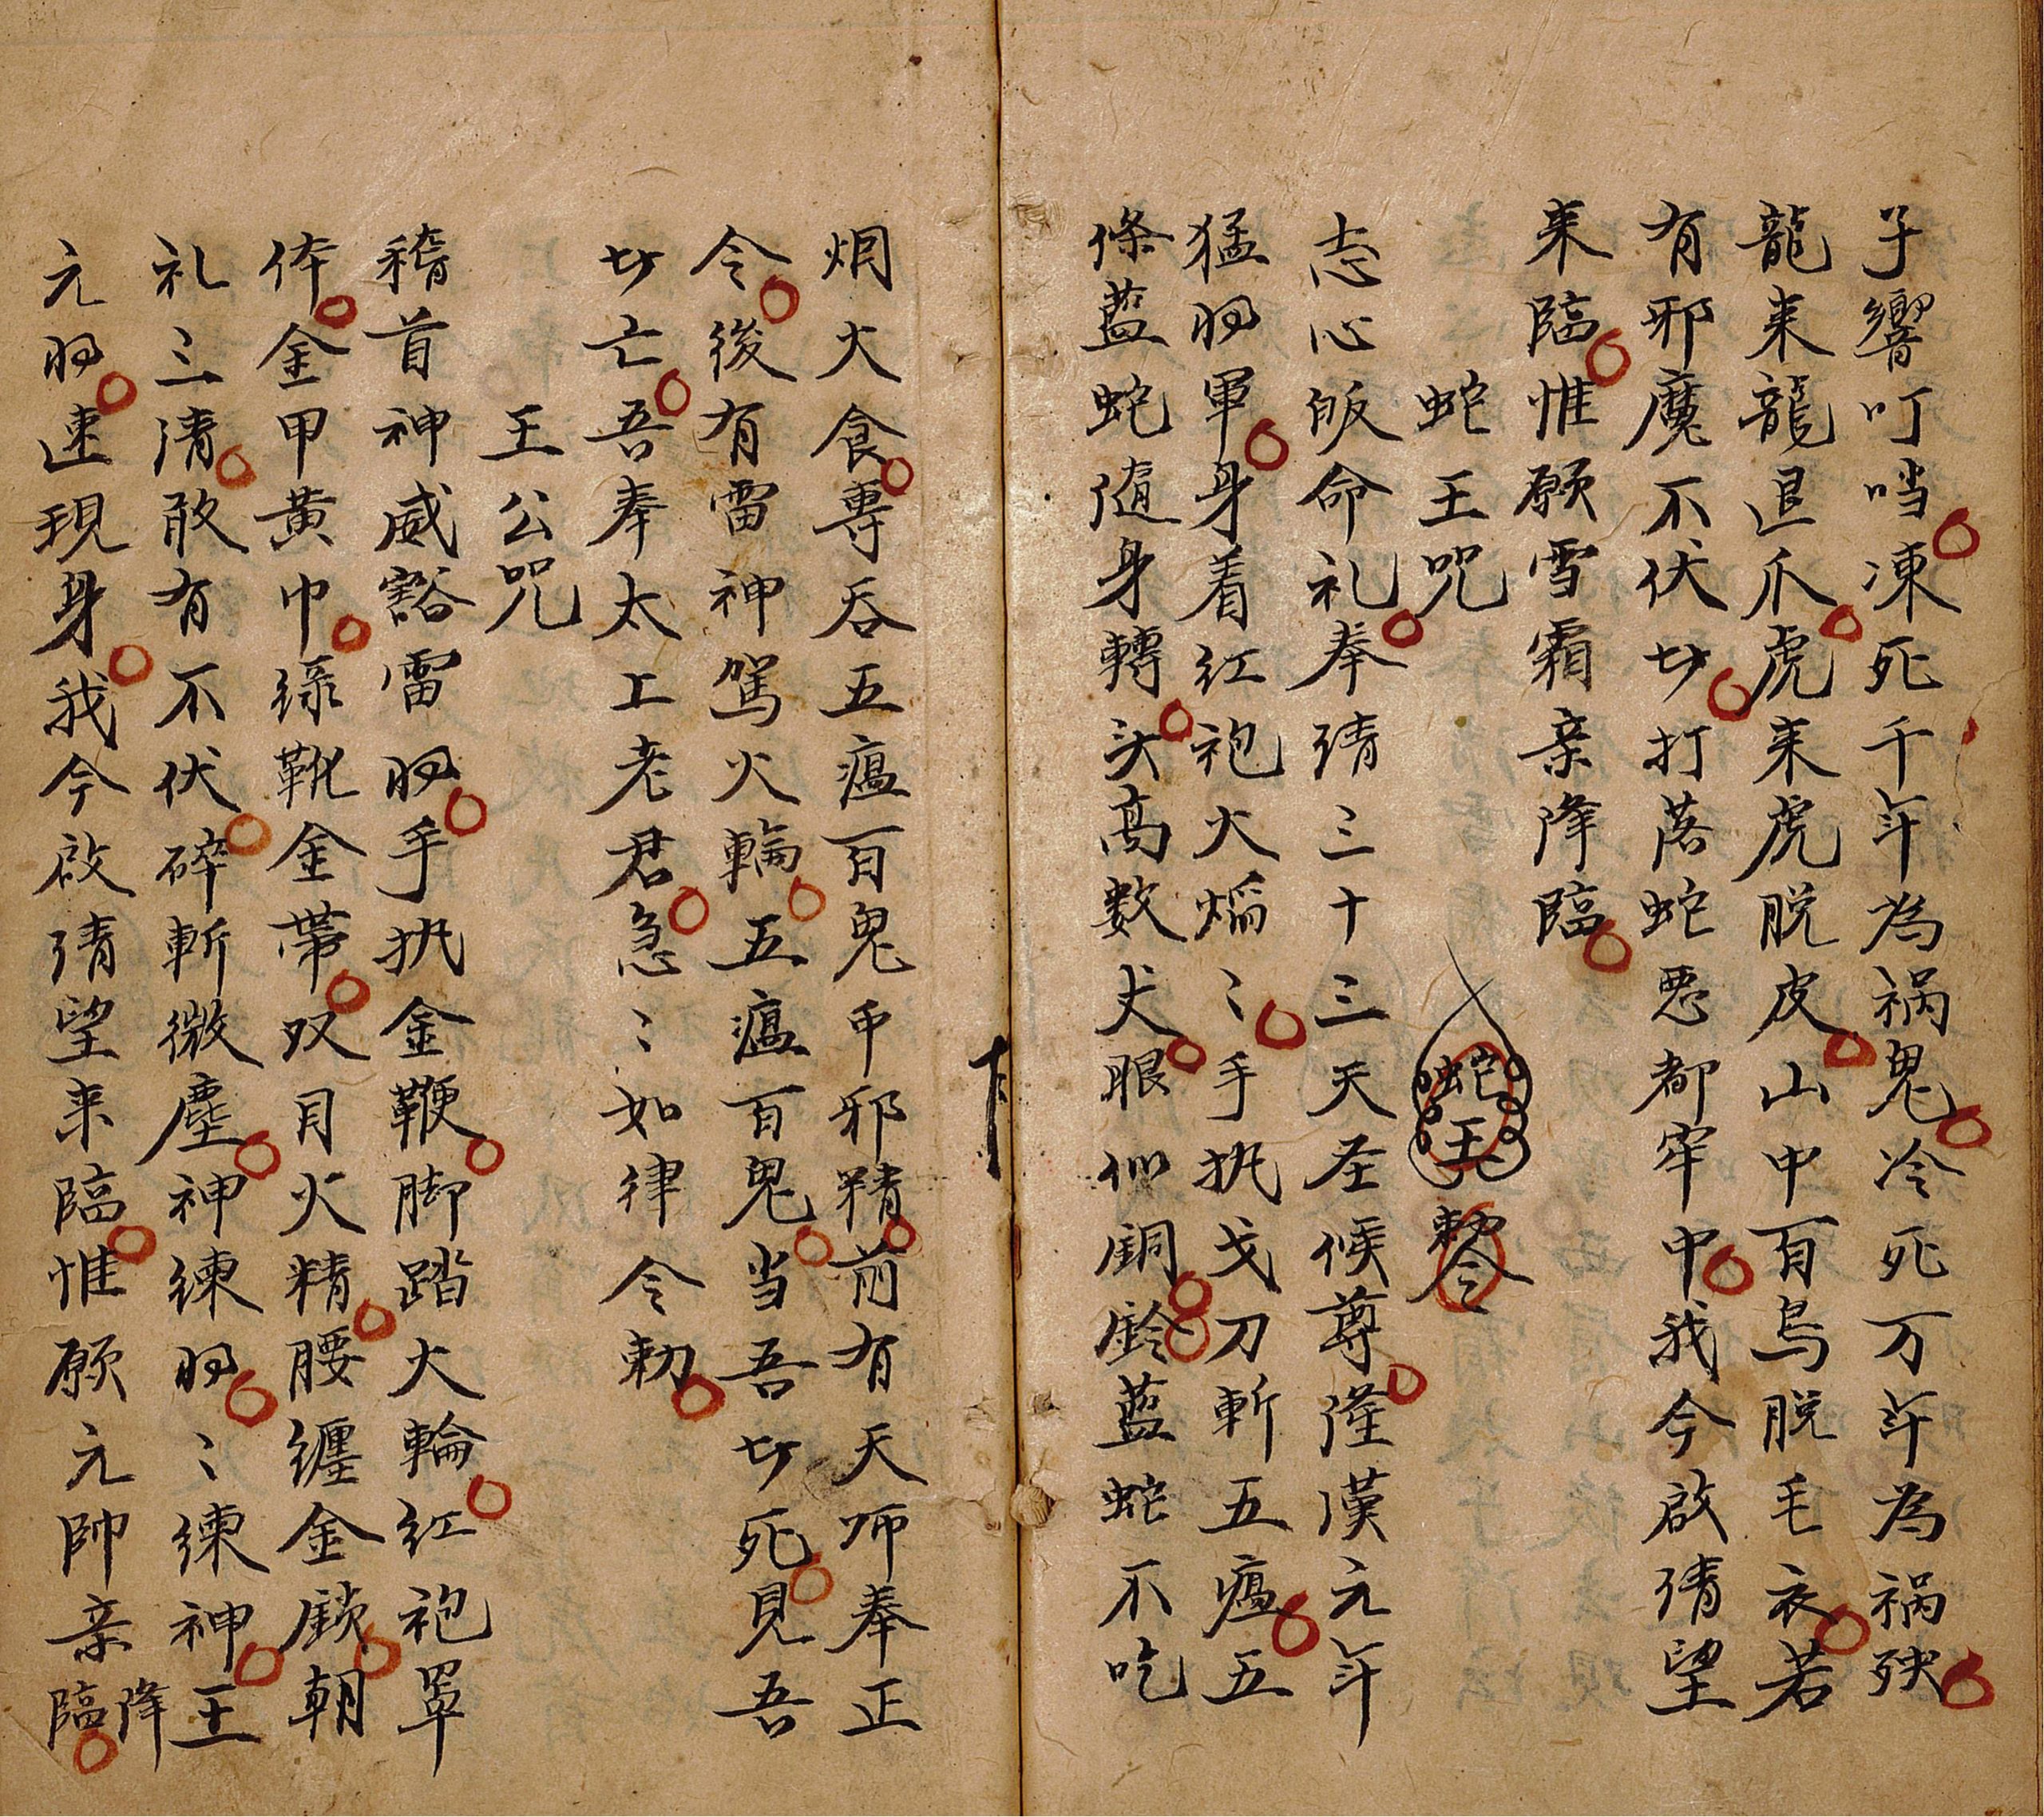 子響叮当凍死千年為祸鬼冷死万年為祸殃
龍来龍退爪虎来虎脱皮山中百鸟脱毛衣若
有邪魔不伏切打落蛇悪都牢中我今啟請望
来臨惟願雪霜亲降臨
蛇王咒 蛇王 勅令
志心皈命礼奉請三十三天圣候尊漢元年
猛将軍身着红袍火焰〻手执戈刀斬五瘟五
條藍蛇随身轉头高数丈眼似銅鈴藍蛇不吃
烟火食專吞五瘟百鬼邪精前有天师奉正
令後有雷神駕火輪五瘟百鬼当吾切死見吾
切亡吾奉太上老君急〻如律令勅
王公咒
稽首神威豁雷将手执金鞭脚踏火輪红袍罩
体金甲黄巾緑靴金帶双目火精腰纏金鎖朝
礼三清敢有不伏碎斬微塵神練将〻練神王
元将速現身我今啟請望来臨惟願元帅亲降臨